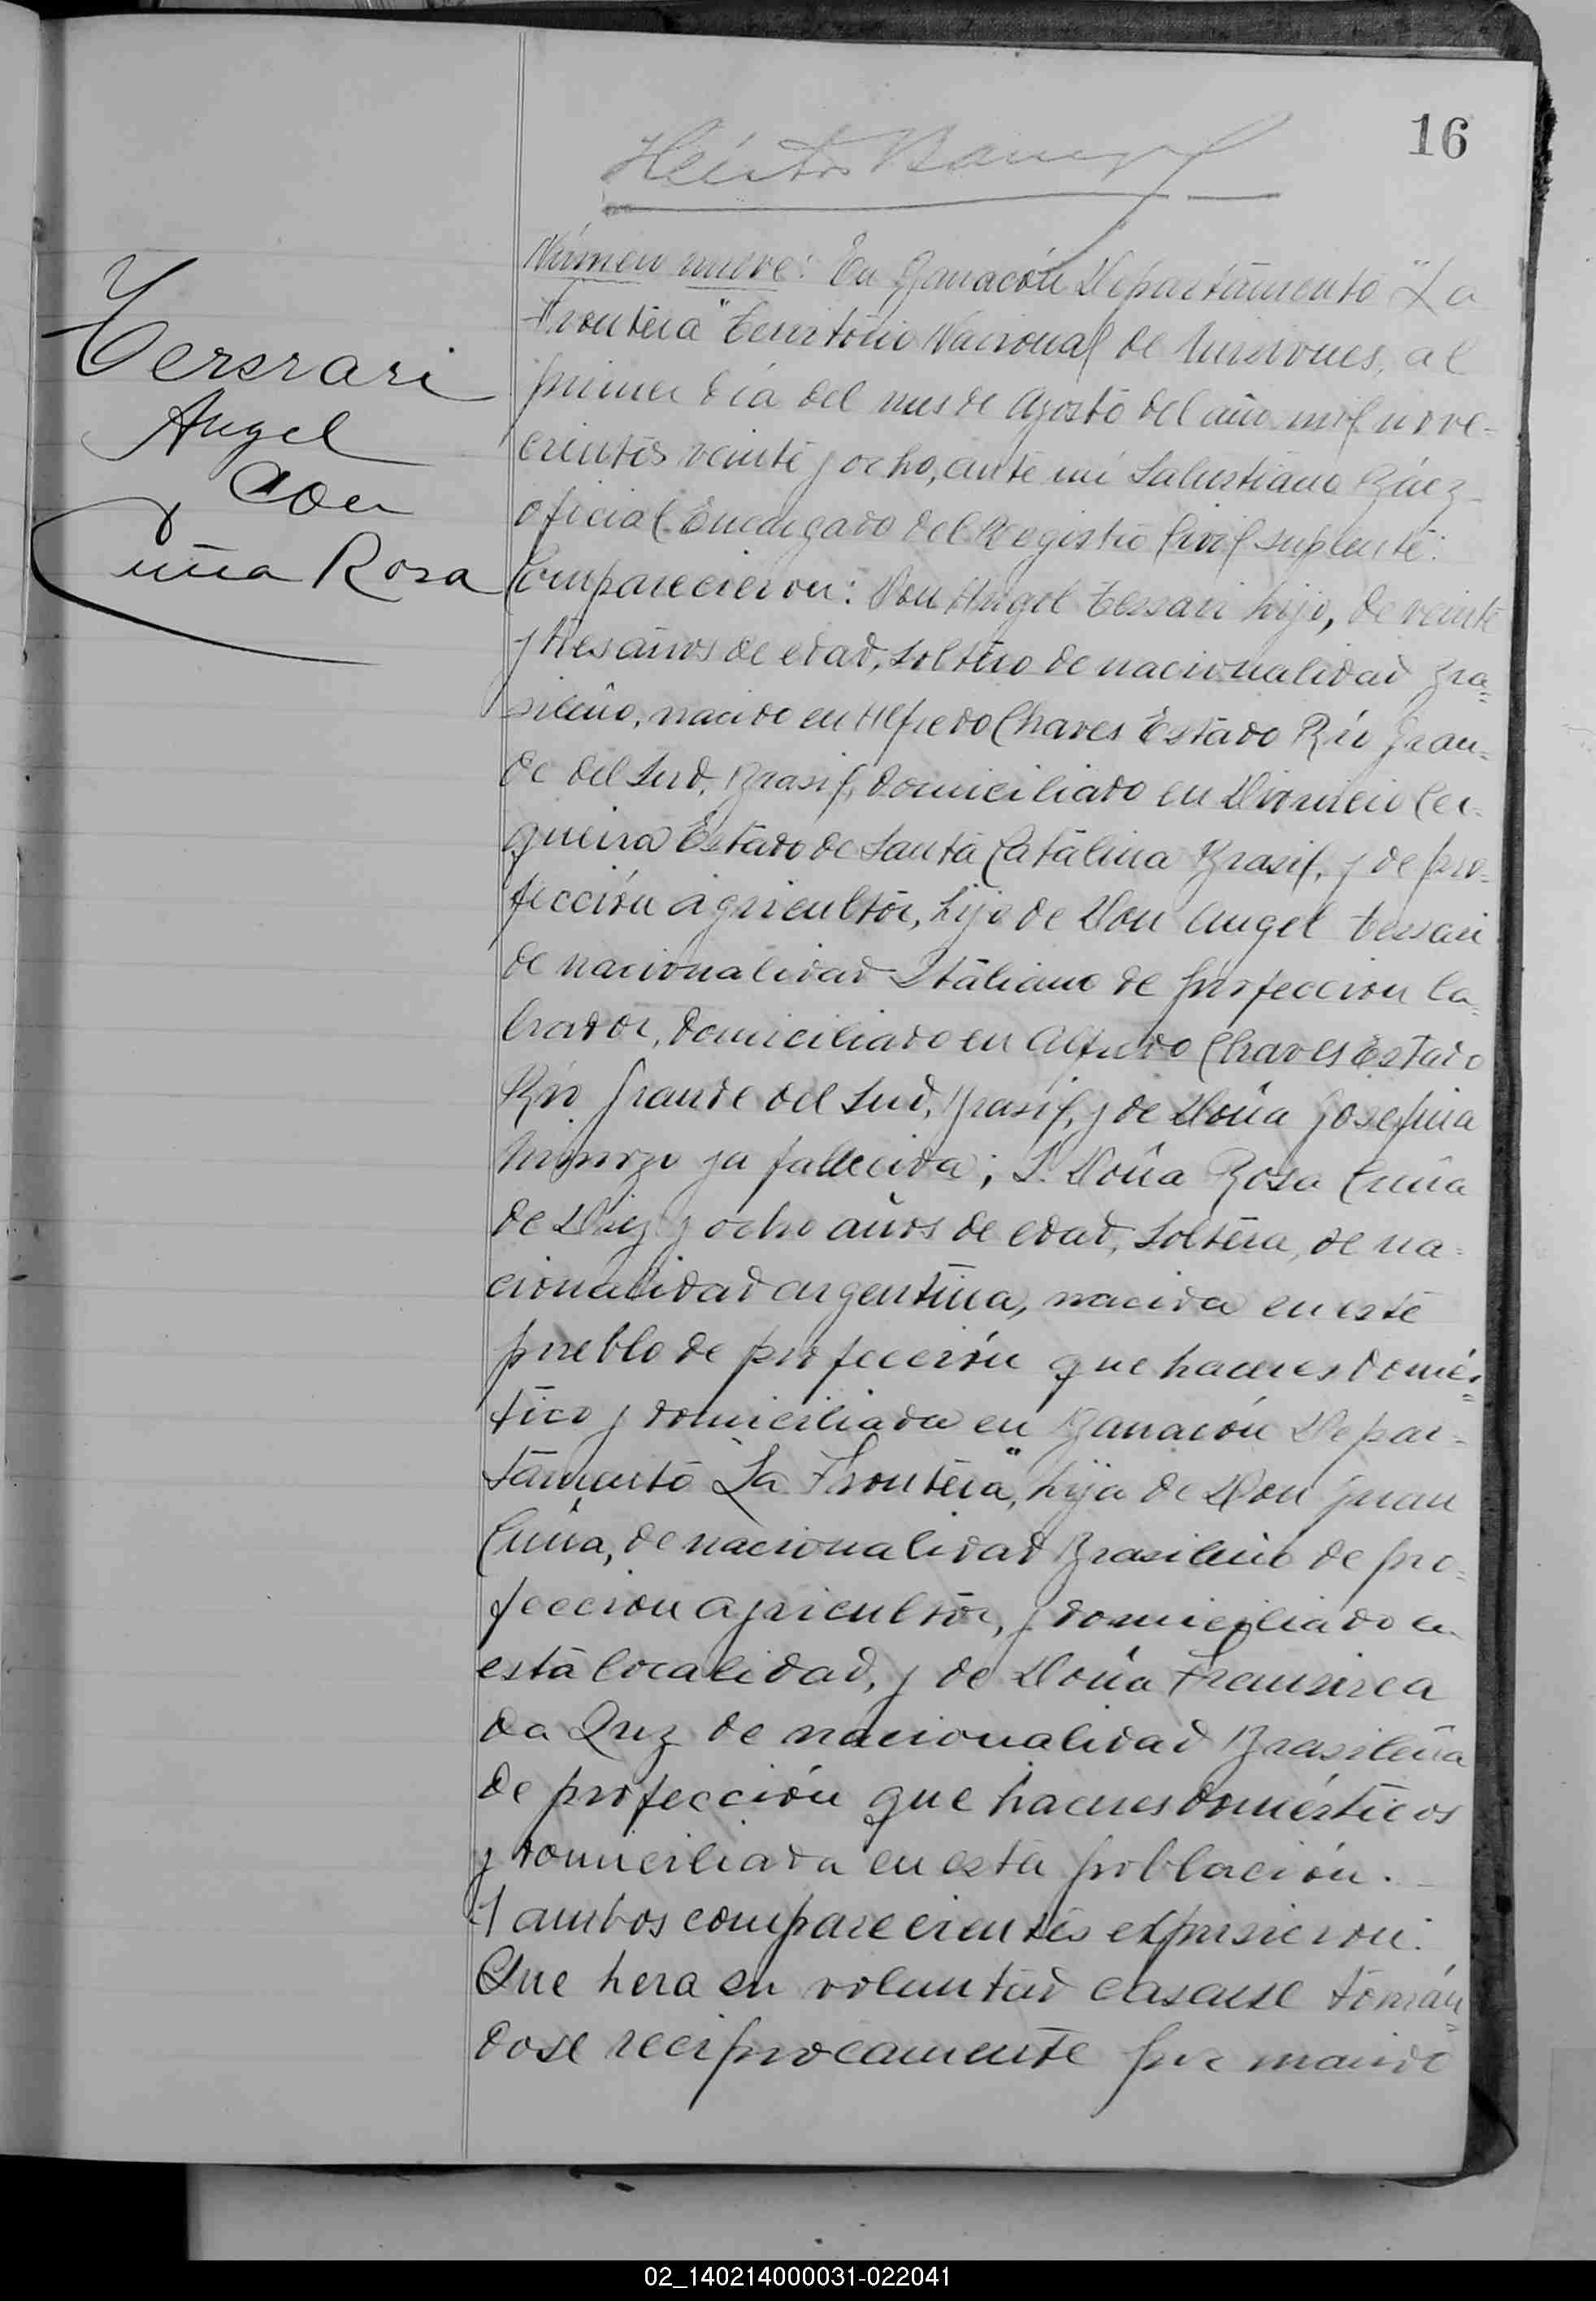 16
Héctor
Tersrari
Angel
con
Cuña Rosa
Número nueve: En Barracón Departamento "La
Frontera" Territorio Nacional de Misiones, al
primer día del mes de Agosto del año mil nove-
cientos veinte y ocho, ante mi Salustiano Báez
oficial Encargado del Registro Civil suplente:
Comparecieron: Don Angel Tessari hijo, de veinte
y tres años de edad, soltero de nacionalidad Bra=
sileño, nacido en Alfredo Chaves Estado Río Gran=
de del Sud, Brasil, domiciliado en Dionicio Cer-
queira Estado de Santa Catalina Brasil, y de pro=
fección agricultor, hijo de Don Angel Tessari
de nacionalidad Italiano de profeccion la=
brador, domiciliado en Alfredo Chaves Estado
Río Grande del Sud, Brasil, y de Doña Josefina
ya fallecida; I. Doña Rosa Cuña
de Diez y ocho años de edad, soltera, de na=
cionalidad argentina, nacida en este
pueblo de profección que haceres domés=
tico y domiciliada en Barracón Depar=
tamento "La Frontera", hija de Don Juan
Cuña, de nacionalidad Brasileño de pro=
feccion agricultor, y domiciliado en
esta localidad, y de Doña Francisca
da Luz de nacionalidad Brasileña
de profección que haceres domésticos
y domiciliada en esta población.
I ambos comparecientes expusieron:
Que hera su voluntad casarse tomán=
dose reciprocamente por marido
02_140214000031-022041